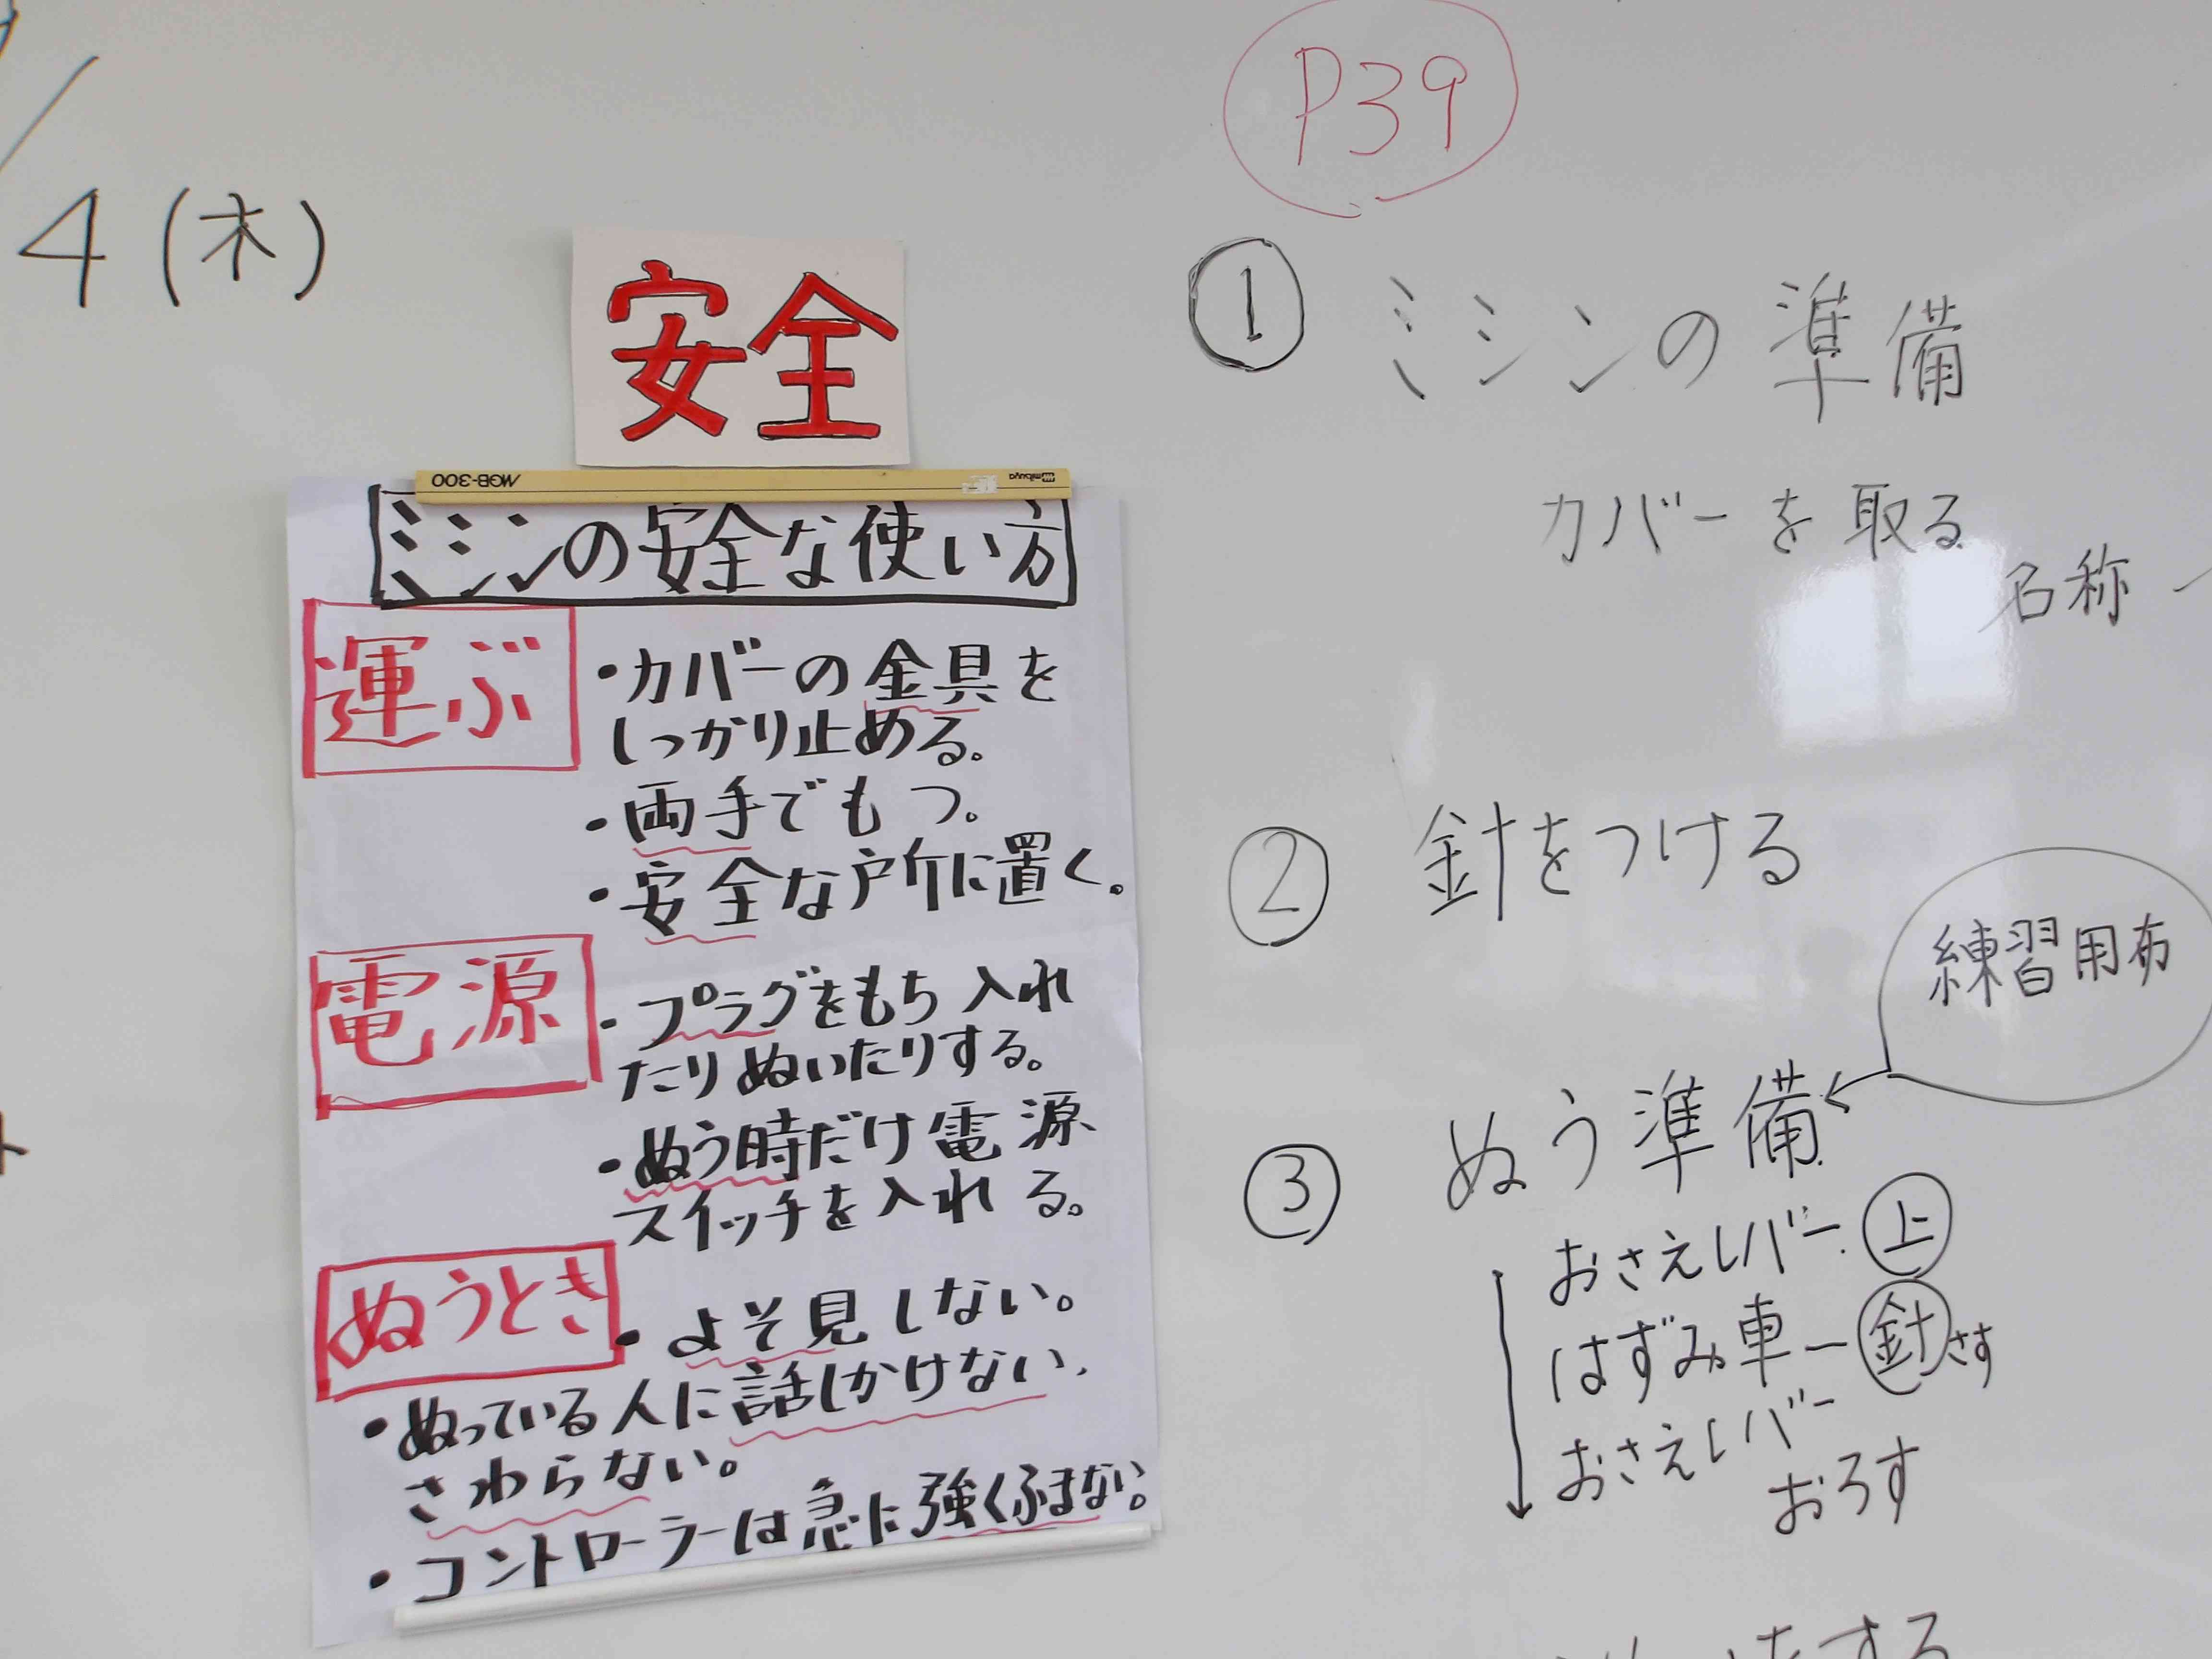 4(木)
安全
MGB-300
mibuya
ミシンの安全な使い方
運ぶ
・カバーの金具を
しっかり止める。
・両手でもつ。
・安全な所に置く。
電源
・プラグをもち入れ
たりぬいたりする。
・ぬう時だけ電源
スイッチを入れる。
ぬうとき
・よそ見しない。
・ぬっている人に話しかけない、
さわらない。
・コントローラーは急に強くふまない。
P39
① ミシンの準備
カバーを取る
名称
② 針をつける
練習用布
③ ぬう準備
おさえレバー 上
はずみ車ー針さす
おさえレバー
おろす
をする